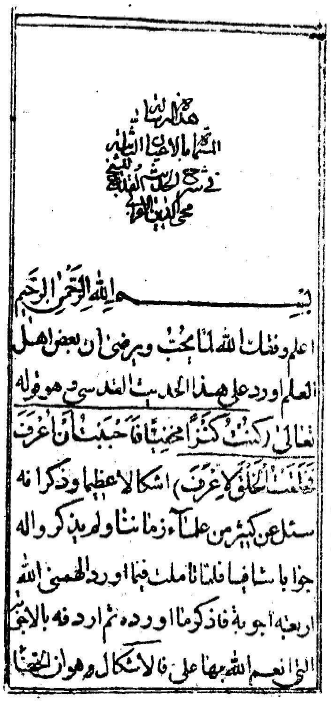 هذه الرسالة
المسماة بالاعيان الثابتة
في شرح الحديث القدسي للشيخ
محيي الدين
بسم الله الرحمن الرحيم
اعلم وفقك الله لما يحب ويرضى ان بعض اهل
العلم اورد على هذا الحديث القدسي وهو قوله
تعالى (كنت كنزا مخفيا فاحببت ان اعرف
فخلقت الخلق لاعرف) اشكالا عظيما وذكر انه
سئل عن كثير من علماء زماننا ولم يذكروا له
جوابا شافيا فلما تاملت فيما اورد الهمني الله
اربعة اجوبة فاذكر ما اورده ثم اردفه بالاجوبة
التي انعم الله بها علي فالاشكال وهو ان الخفا